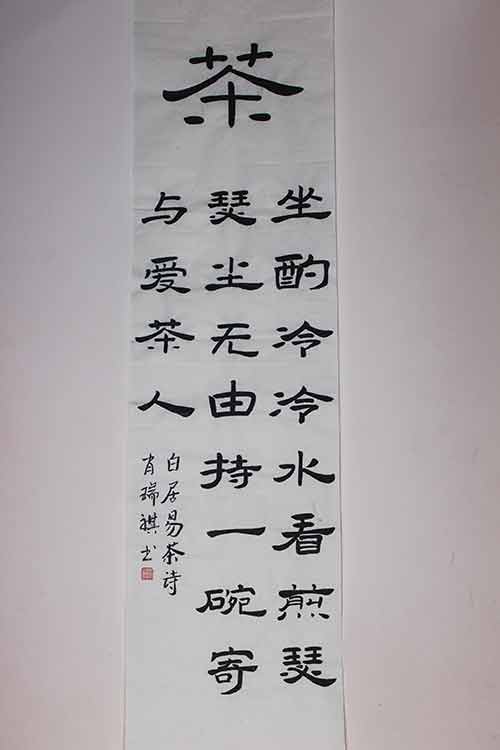 茶
坐酌冷冷水看煎瑟
瑟尘无由持一碗寄
与爱茶人
白居易茶诗
肖瑞祺书